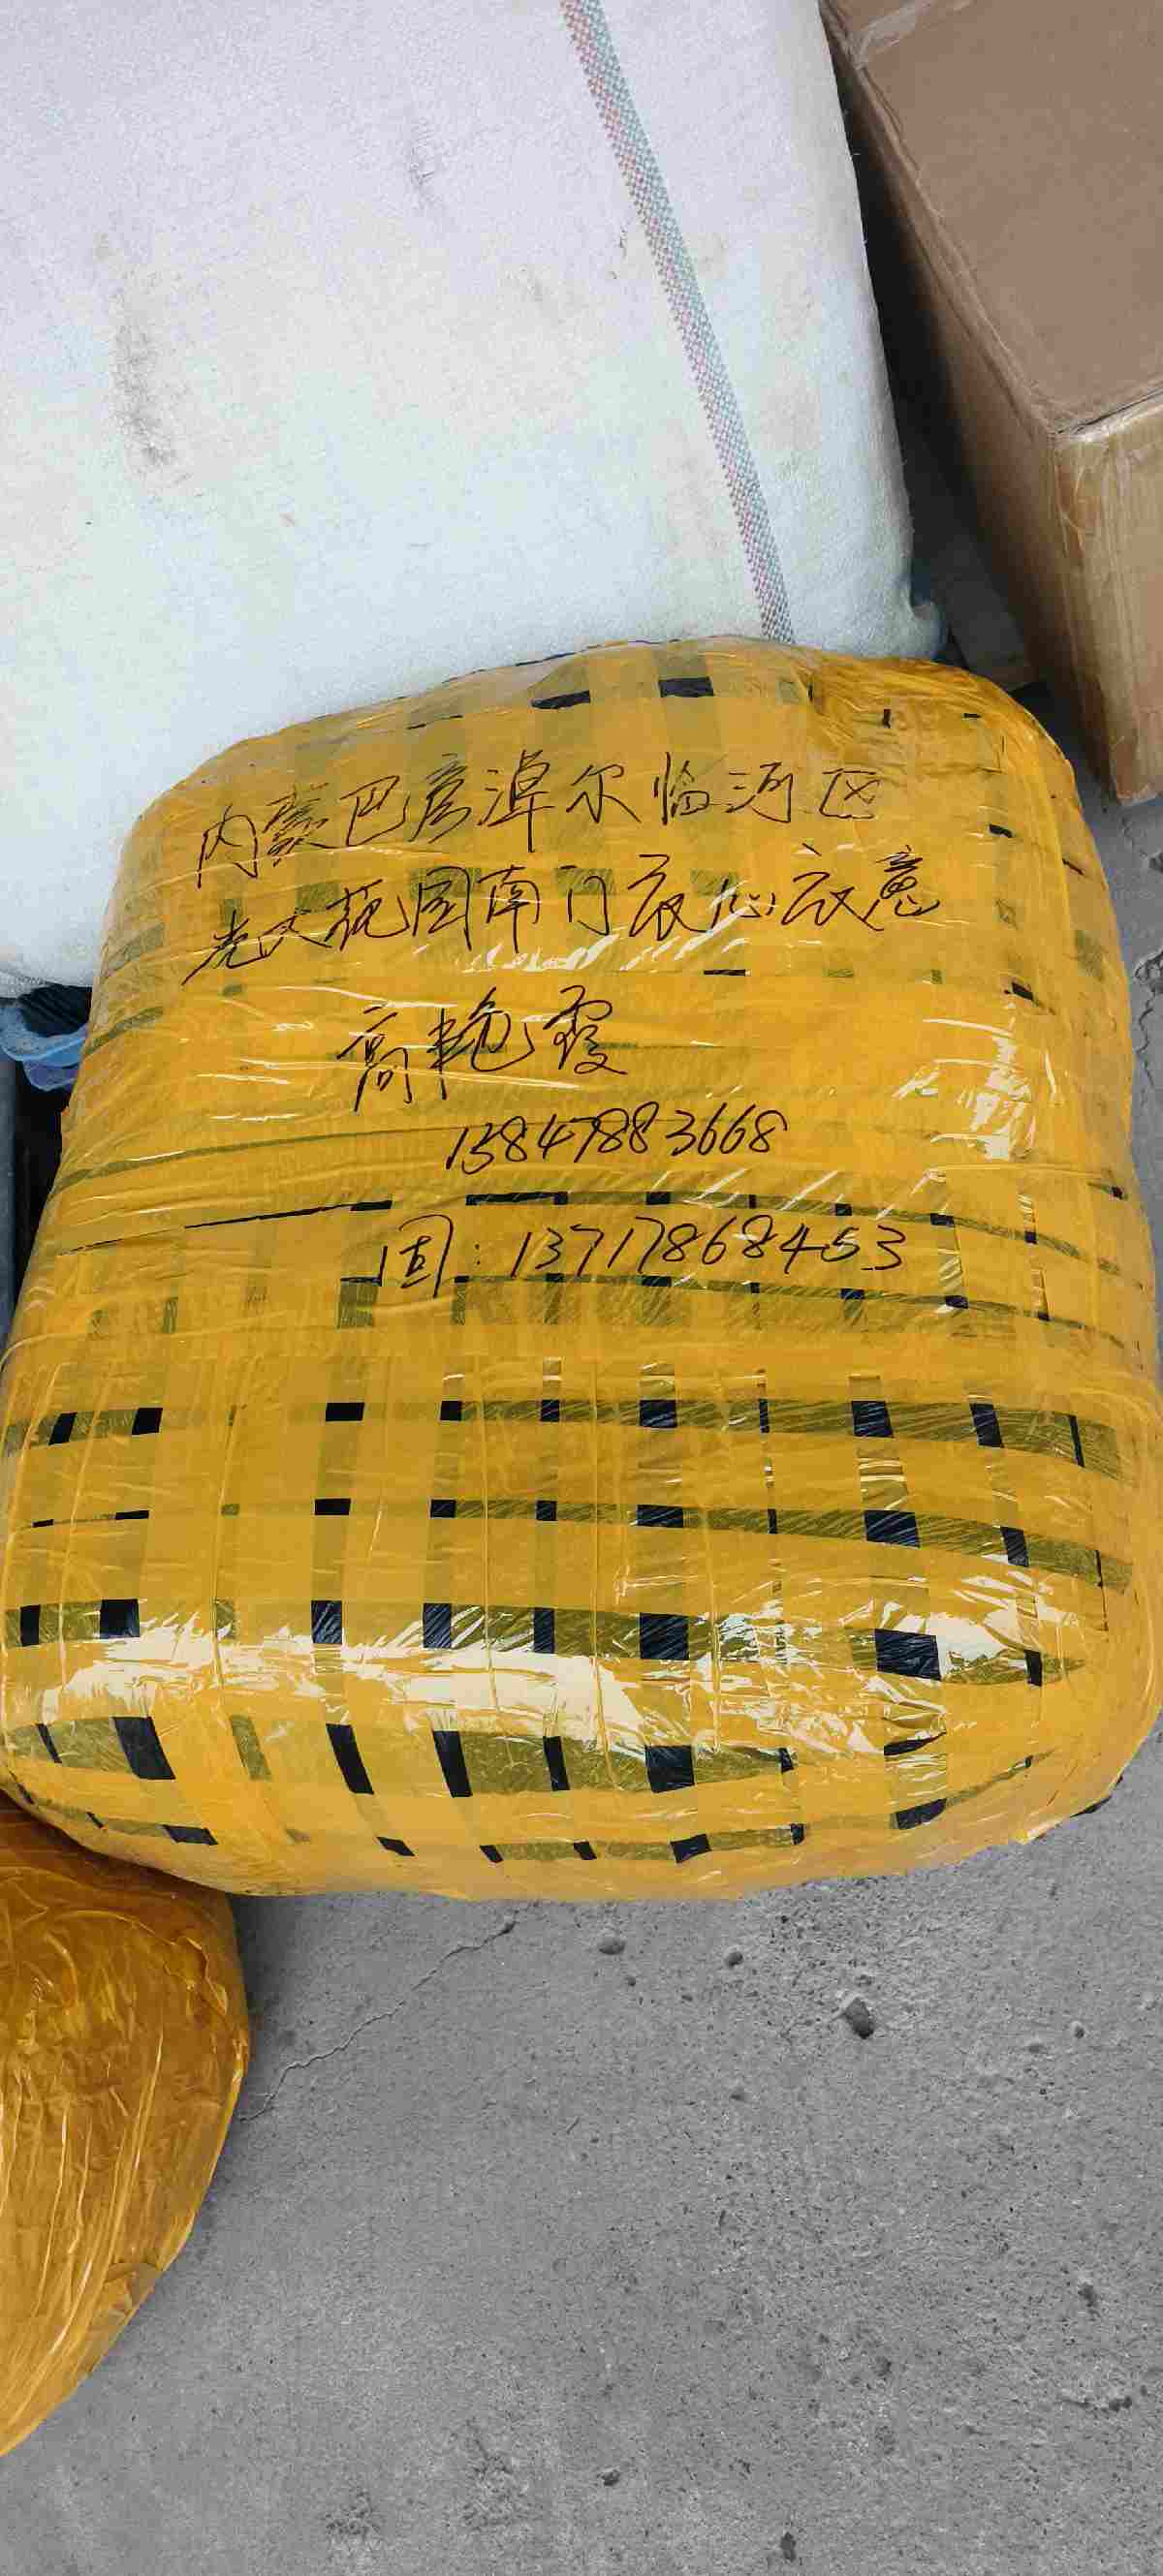 内蒙巴彦淖尔临河区
光大花园南门衣心衣意
高艳霞
13847883668
固:13717868453